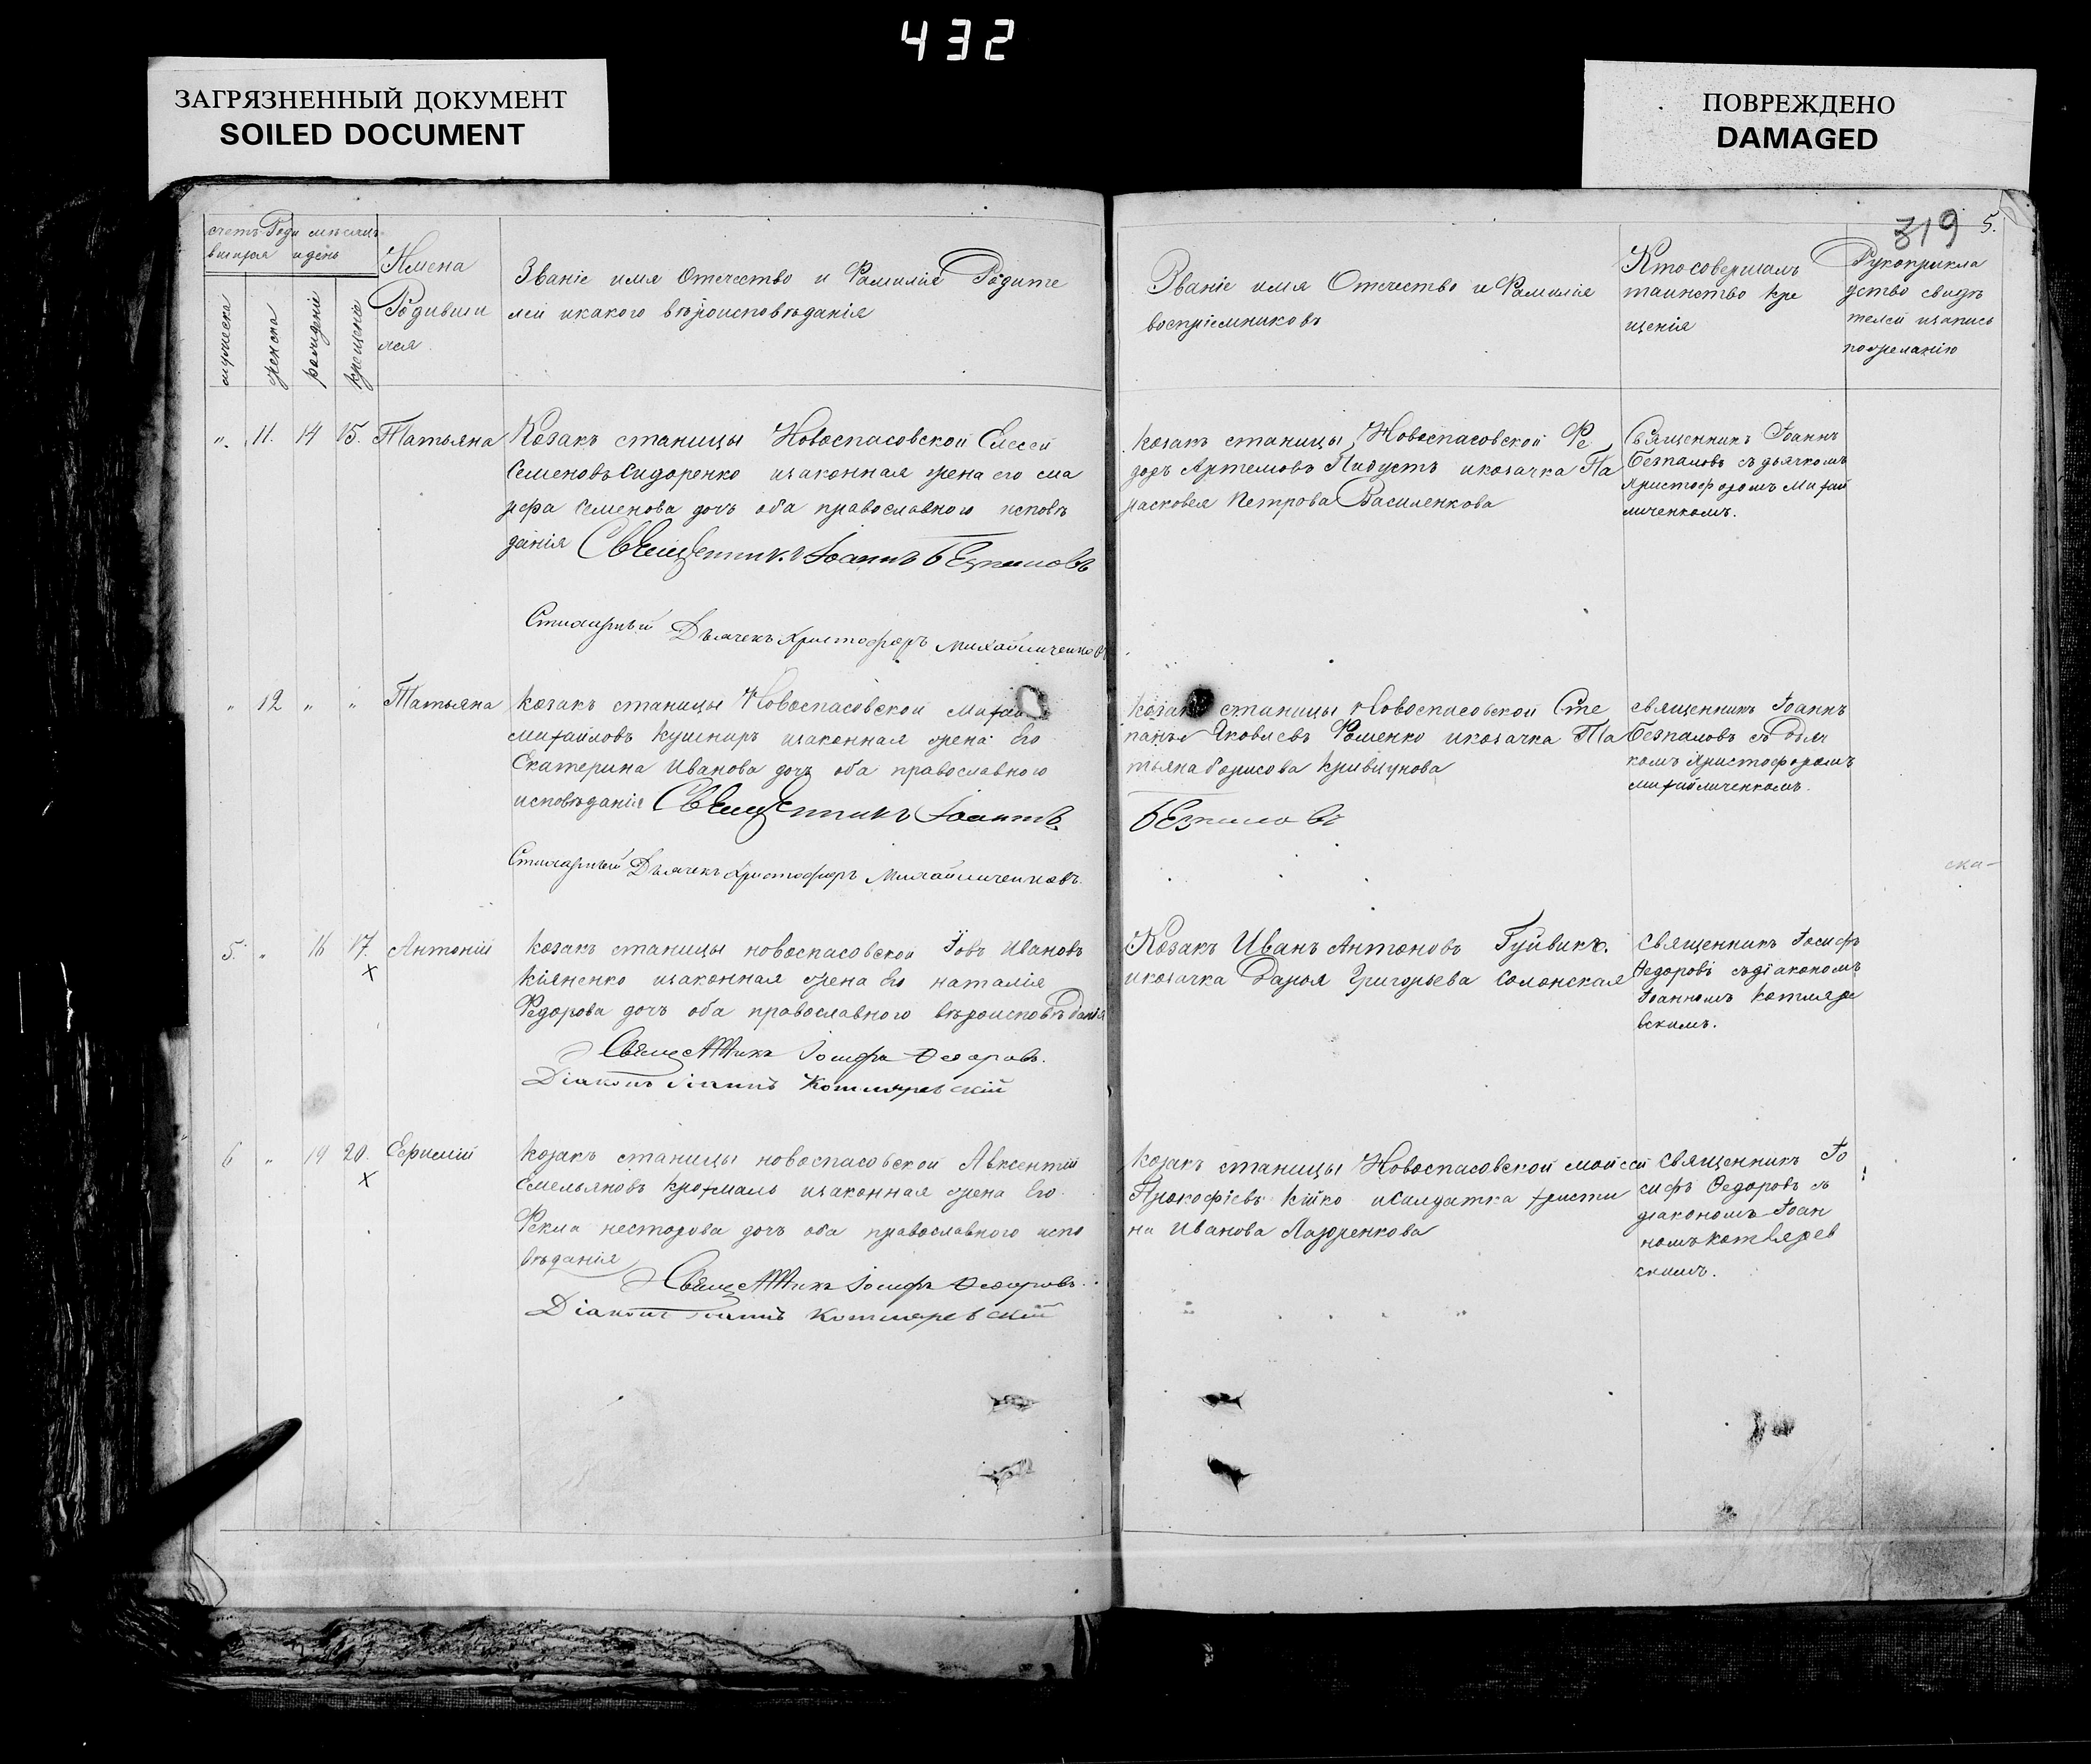 432
ЗАГРЯЗНЕННЫЙ ДОКУМЕНТ
SOILED DOCUMENT
ПОВРЕЖДЕНО
DAMAGED
319 5.
счетъ Годъ мѣсяцъ
и день
мужеска
женска
рожденіе
крещеніе
Имена
Родивши
лся
Званіе имя Отечество и Фамилія Родите
лей икакого вѣроисповѣданія
Званіе имя Отечество и Фамилія
воспріемниковъ
Кто совершалъ
таинство кре
щенія
Рукоприкла
дство свидѣ
телей изапись
пожеланію
„ 11. 14 15. Татьяна
Козакъ станицы Новоспасовской Елесей
Семеновъ Сидоренко изаконная жена его Ма
рфа Семенова дочь оба православного исповѣ
данія Священникъ Іоаннъ Безпаловъ
Стихарный Дьячекъ Христофоръ Михайличенковъ
Козакъ станицы Новоспасовской Фе
доръ Артемовъ Пидустъ икозачка Па
расковея Петрова Василенкова
Священникъ Іоаннъ
Безпаловъ съ дьячкомъ
Христофоромъ Михай
личенкомъ.
„ 12 „ „ Татьяна
Козакъ станицы Новоспасовской
Михайловъ Кушниръ изаконная жена Его
Екатерина Иванова дочь оба православного
исповѣданія Священникъ Іоаннъ
Стихарный Дьячекъ Христофоръ Михайличенковъ.
Козакъ станицы Новоспасовской Сте
панъ Яковлевъ Фоменко икозачка Та
тьяна Борисова Кривцунова
Безпаловъ
Священникъ Іоаннъ
Безпаловъ съ Дьяч
комъ Христофоромъ
Михайличенкомъ.
5. „ 16 17. Антоній
х
Козакъ станицы новоспасовской Іовъ Ивановъ
Кіяненко изаконная жена Его Наталія
Федорова дочь оба православного вѣроисповѣданія
Священникъ Іосифъ Ѳедоровъ.
Діаконъ Іоаннъ Котляревскій
Козакъ Иванъ Антоновъ Гуйвикъ.
икозачка Дарья Григорьева Солонская
Священникъ Іосифъ
Ѳедоровъ съдіакономъ
Іоанномъ Котляре
вскимъ.
6 „ 19 20. Ефимій
х
Козакъ станицы новоспасовской Авксентій
Емельяновъ Крохмаль изаконная жена Его
Фекла несторова дочь оба православного испо
вѣданія
Священникъ Іосифъ Ѳедоровъ.
Діаконъ Іоаннъ Котляревскій
Козакъ станицы Новоспасовской Мойсей
Прокофіевъ Кійко исолдатка Христи
на Иванова Лазоренкова
Священникъ Іо
сифъ Ѳедоровъ съ
діакономъ Іоан
номъ Котлярев
скимъ.